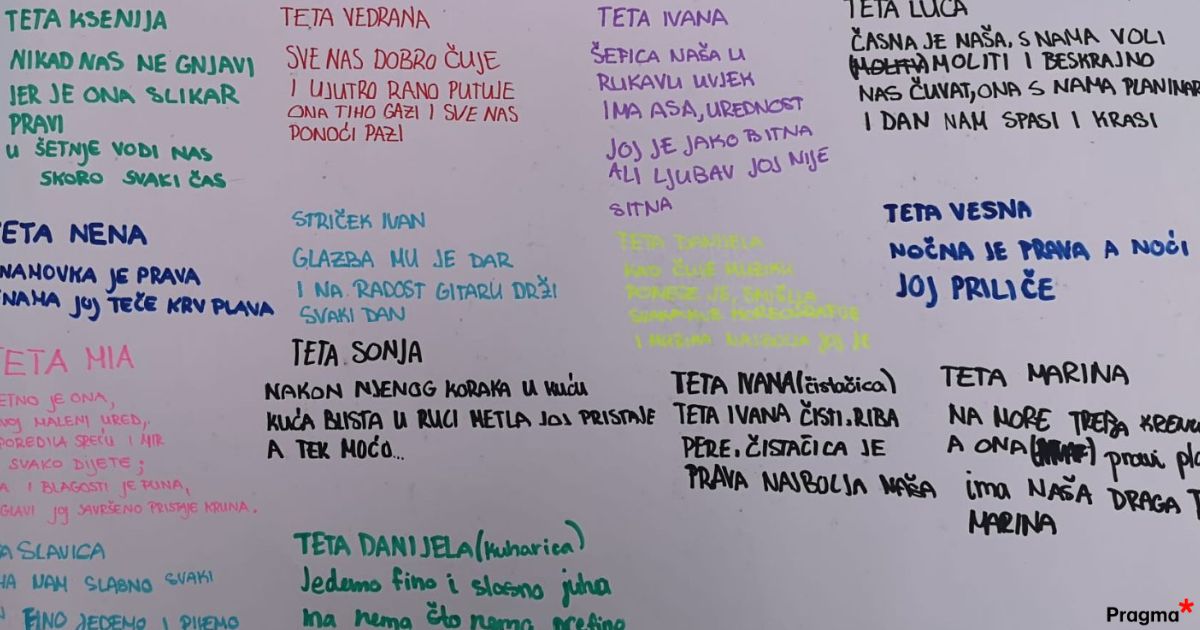 TETA KSENIJA
NIKAD NAS NE GNJAVI
JER JE ONA SLIKAR
PRAVI
U ŠETNJE VODI NAS
SKORO SVAKI ČAS
TETA VEDRANA
SVE NAS DOBRO ČUJE
I UJUTRO RANO PUTUJE
ONA TIHO GAZI I SVE NAS
PONOĆI PAZI
TETA IVANA
ŠEFICA NAŠA U
RUKAVU UVJEK
IMA ASA, UREDNOST
JOJ JE JAKO BITNA
ALI LJUBAV JOJ NIJE
SITNA
TETA LUCA
ČASNA JE NAŠA, S NAMA VOLI
(MOLITV) MOLITI I BESKRAJNO
NAS ČUVAT, ONA S NAMA PLANINAR
I DAN NAM SPASI I KRASI
ETA NENA
NANOVKA JE PRAVA
NAMA JOJ TEČE KRV PLAVA
STRIČEK IVAN
GLAZBA MU JE DAR
I NA RADOST GITARU DRŽI
SVAKI DAN
TETA DANIJELA
KAD ČUJE MUZIKU
PONESE JE, SMIŠLJA
SVAKAKVE KOREOGRAFIJE
I MUZIKA NAJBOLJA JOJ JE
TETA VESNA
NOĆNA JE PRAVA A NOĆI
JOJ PRILIČE
TETA MIA
ETNO JE ONA,
VOJ MALENI URED,
POREDILA SREĆU I MIR
SVAKO DIJETE;
A I BLAGOSTI JE PUNA,
GLAVI JOJ SAVRŠENO PRISTAJE KRUNA.
TETA SONJA
NAKON NJENOG KORAKA U KUĆU
KUĆA BLISTA U RUCI METLA JOJ PRISTAJE
A TEK MOĆO...
TETA IVANA (čistačica)
TETA IVANA ČISTI, RIBA
PERE. ČISTAČICA JE
PRAVA NAJBOLJA NAŠA
TETA MARINA
NA MORE TREBA KRENU
A ONA pravi pl
ima NAŠA DRAGA T
MARINA
A SLAVICA
HA NAM SLASNO SVAKI
FINO JEDEMO I PIJEMO
TETA DANIJELA (kuharica)
Jedemo fino i slasno juha
ma nema što nema prefino
Pragma*